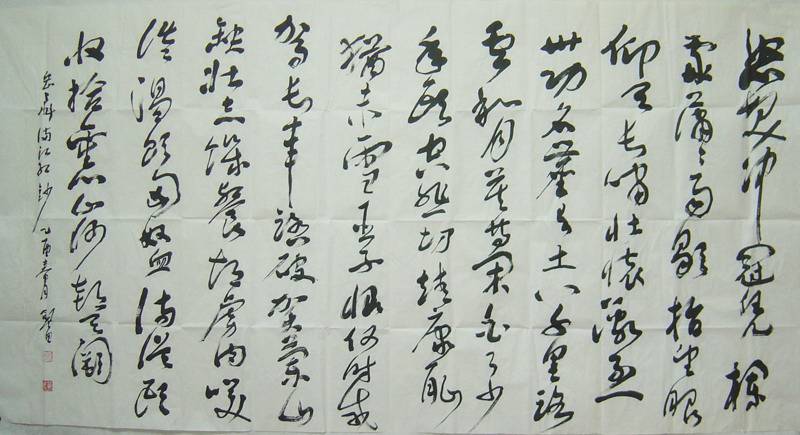 怒髮冲冠凭栏
處瀟瀟雨歇抬望眼
仰天长啸壮怀激烈
卅功名尘与土八千里路
雲和月莫等闲白了少
年头空悲切靖康耻
猶未雪臣子恨何时灭
驾长车踏破贺兰山
缺壮志饑餐胡虏肉笑
谈渴饮匈奴血待從头
收拾旧山河朝天阙
岳飞满江红抄 乙酉春月